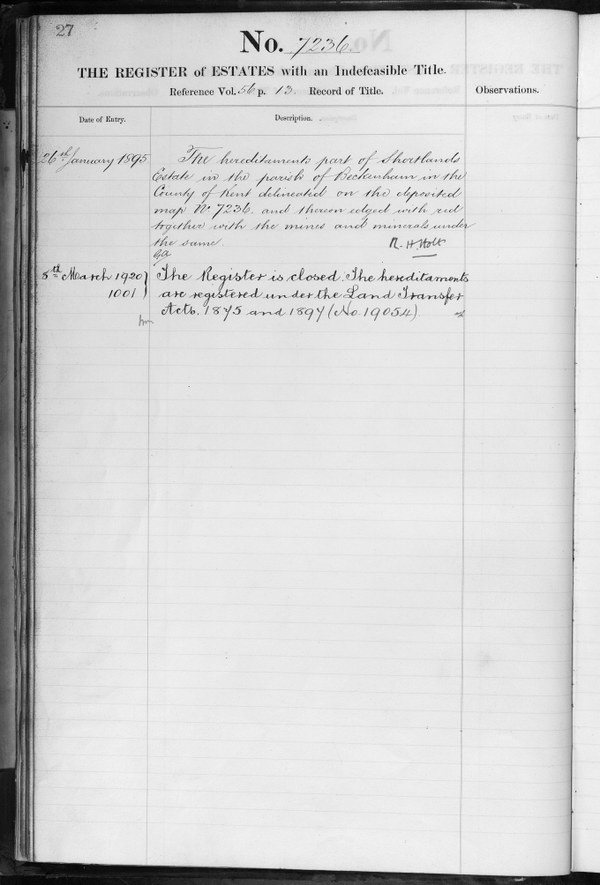 27
No. 7236
THE REGISTER of ESTATES with an Indefeasible Title.
Reference Vol. 56 p. 13. Record of Title.
Observations.
Date of Entry.
Description.
26th January 1895
The hereditaments part of Shortlands
Estate in the parish of Beckenham in the
County of Kent delineated on the deposited
map No 7236 and thereon edged with red
together with the mines and minerals under
the same.
R. H. Holt
8th March 1920
1001
The Register is closed. The hereditaments
are registered under the Land Transfer
Acts, 1875 and 1897 (No. 19054)